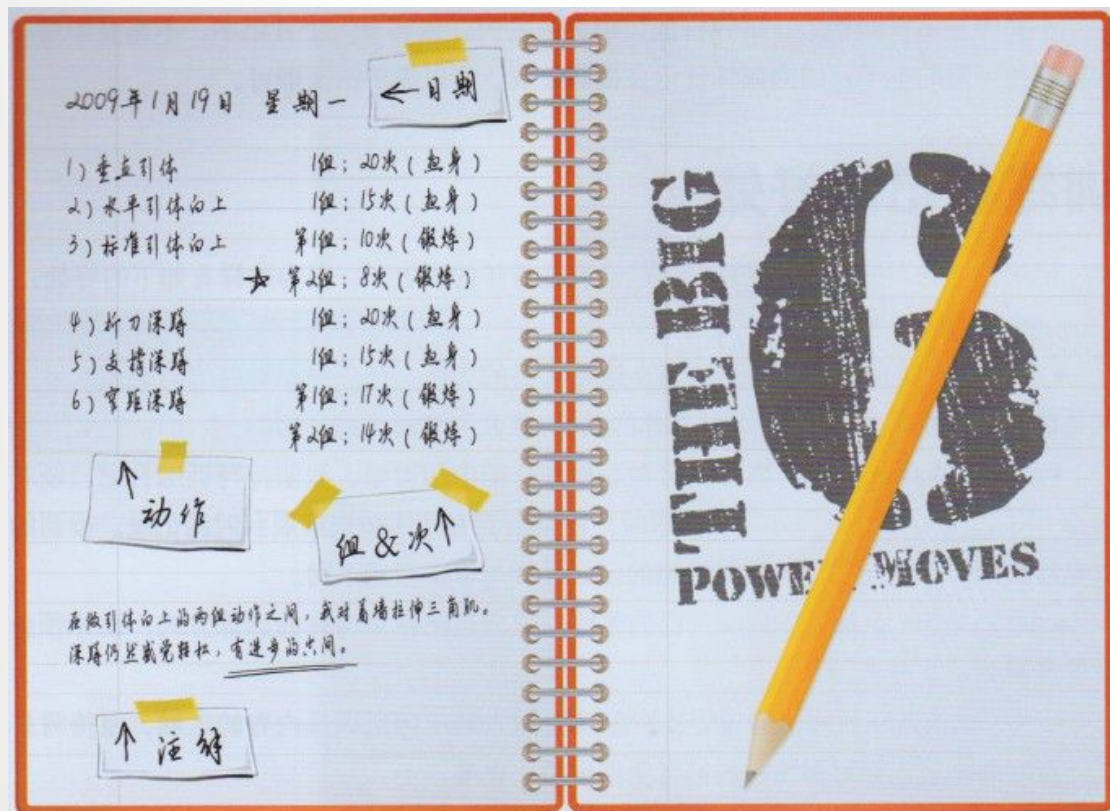 2009年1月19日 星期一
←日期
1) 垂直引体 1组; 20次(热身)
2) 水平引体向上 1组; 15次(热身)
3) 标准引体向上 第1组; 10次(锻炼)
☆ 第2组; 8次(锻炼)
4) 折刀深蹲 1组; 20次(热身)
5) 支撑深蹲 1组; 15次(热身)
6) 窄距深蹲 第1组; 17次(锻炼)
第2组; 14次(锻炼)
↑动作
组&次↑
在做引体向上的两组动作之间，我对着墙拉伸三角肌。
深蹲仍然感觉轻松，有进步的空间。
↑注解
THE BIG
6
POWER MOVES